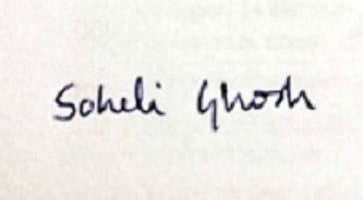 Soheli Ghosh